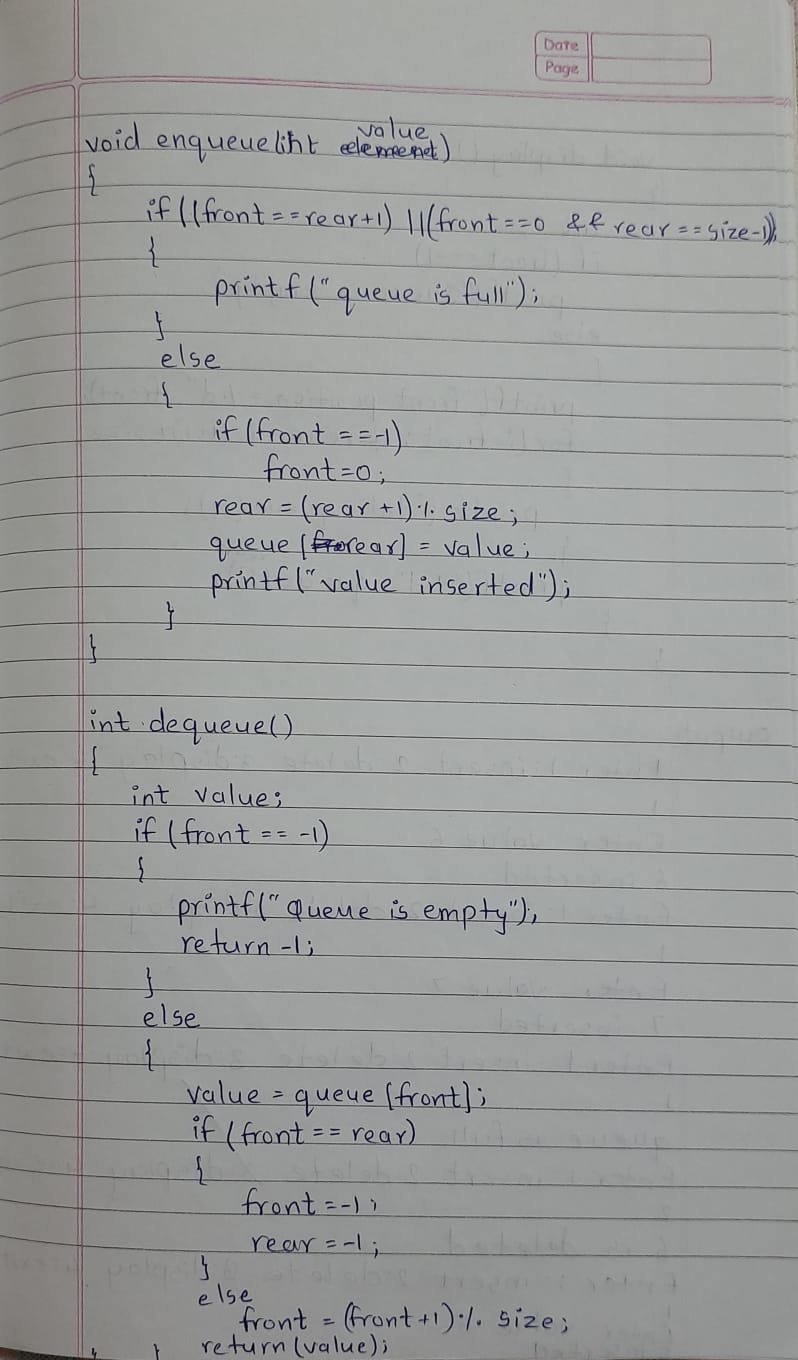 Date
Page
void enqueue(int value)
{
if((front==rear+1) ||(front==0 && rear==size-1))
{
printf("queue is full");
}
else
{
if(front ==-1)
front=0;
rear=(rear+1)% size;
queue[rear] = value;
printf("value inserted");
}
}
int dequeue()
{
int value;
if(front == -1)
{
printf("Queue is empty");
return -1;
}
else
{
value = queue[front];
if (front == rear)
{
front=-1;
rear=-1;
}
else
front = (front+1)% size;
return(value);
} }